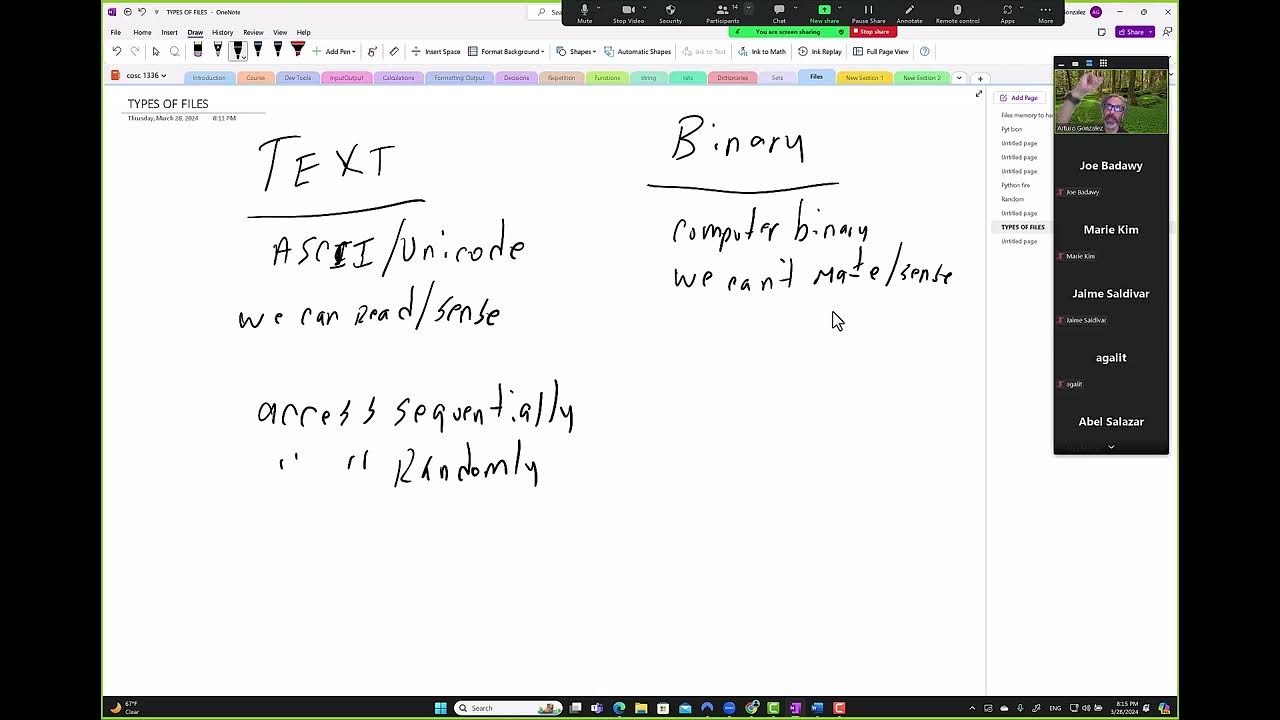 TYPES OF FILES - OneNote
Mute
Stop Video
Security
Participants
14
Chat
New share
Pause Share
Annotate
Remote control
Apps
More
You are screen sharing
Stop share
onzalez
AG
File
Home
Insert
Draw
History
Review
View
Help
Share
Add Pen
Insert Space
Format Background
Shapes
Automatic Shapes
Ink to Text
Ink to Math
Ink Replay
Full Page View
cosc 1336
Introduction
Course
Dev Tools
InputOutput
Calculations
Formatting Output
Decisions
Repetition
Functions
string
lists
Dictionaries
Sets
Files
New Section 1
New Section 2
TYPES OF FILES
Thursday, March 28, 2024 8:11 PM
TEXT
ASCII/Unicode
we can Read/sense
access sequentially
" " Randomly
Binary
computer binary
we can't mate/sense
Add Page
Files memory to har
Pyt bon
Untitled page
Untitled page
Untitled page
Python fire
Random
Untitled page
TYPES OF FILES
Untitled page
Arturo Gonzalez
Joe Badawy
Joe Badawy
Marie Kim
Marie Kim
Jaime Saldivar
Jaime Saldivar
agalit
agalit
Abel Salazar
67°F
Clear
Search
ENG
8:15 PM
3/28/2024